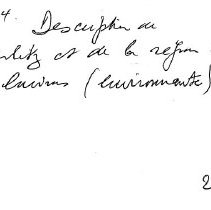 4. Description de
et de la région
environs (environnante)
2